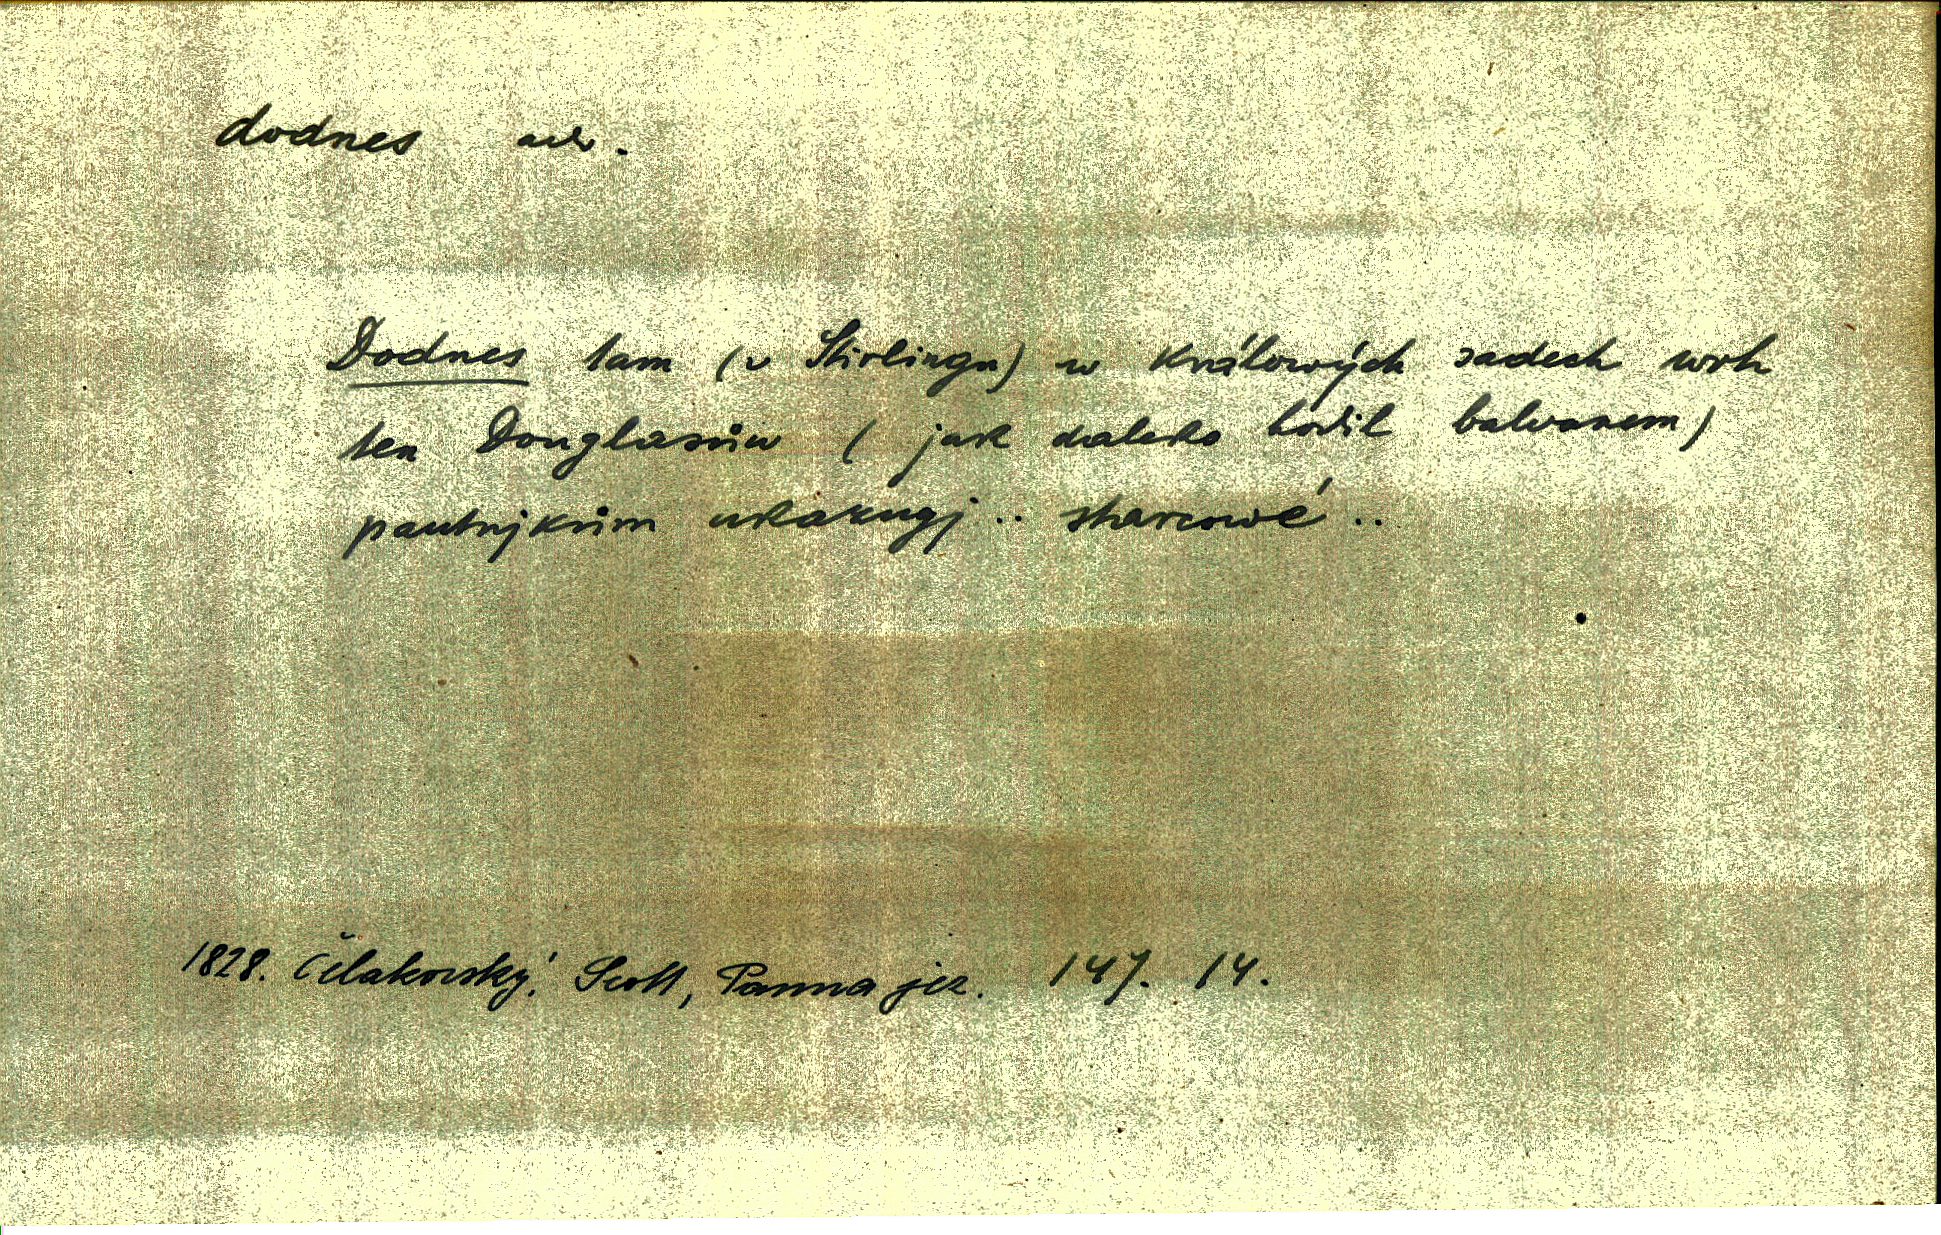 dodnes adv.
Dodnes tam (v Stirlingu) w Králowých sadech wrh
ten Douglasůw (jak daleko hodil balvanem)
pautnjkům ukazugj .. starcowé ..
1828. Čelakovský, Scott, Panna jez. 147. 14.